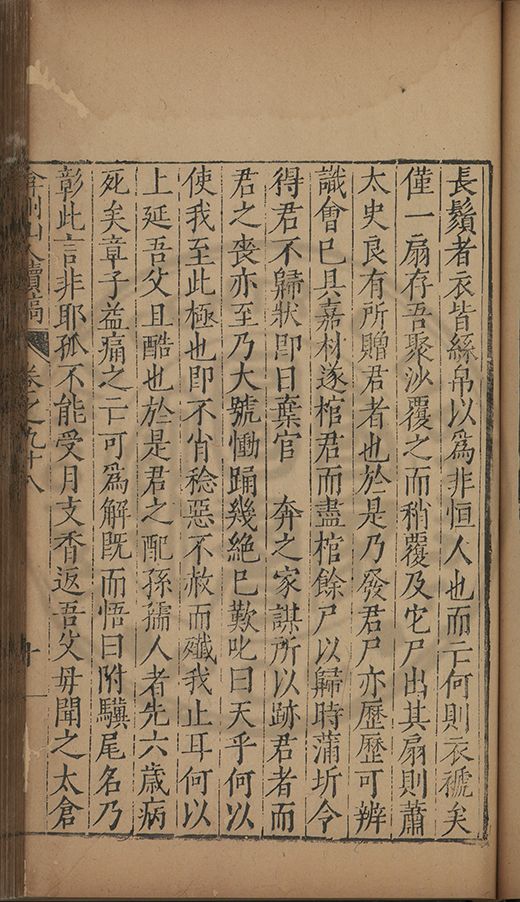 長鬚者衣皆絲帛以爲非恒人也而亡何則衣褫矣
僅一扇存吾聚沙覆之而稍覆及它尸出其扇則蕭
太史良有所贈君者也於是乃發君尸亦歷歷可辨
識會巳具嘉材遂棺君而盡棺餘尸以歸時蒲圻令
得君不歸狀即日棄官　奔之家謀所以跡君者而
君之喪亦至乃大號慟踊幾絶巳歎叱曰天乎何以
使我至此極也即不肖稔惡不赦而殲我止耳何以
上延吾父且酷也於是君之配孫孺人者先六歲病
死矣章子益痛之亡可爲解既而悟曰附驥尾名乃
彰此言非耶孤不能受月支香返吾父毋聞之太倉
弇州山人續稿　卷之九十八　十一